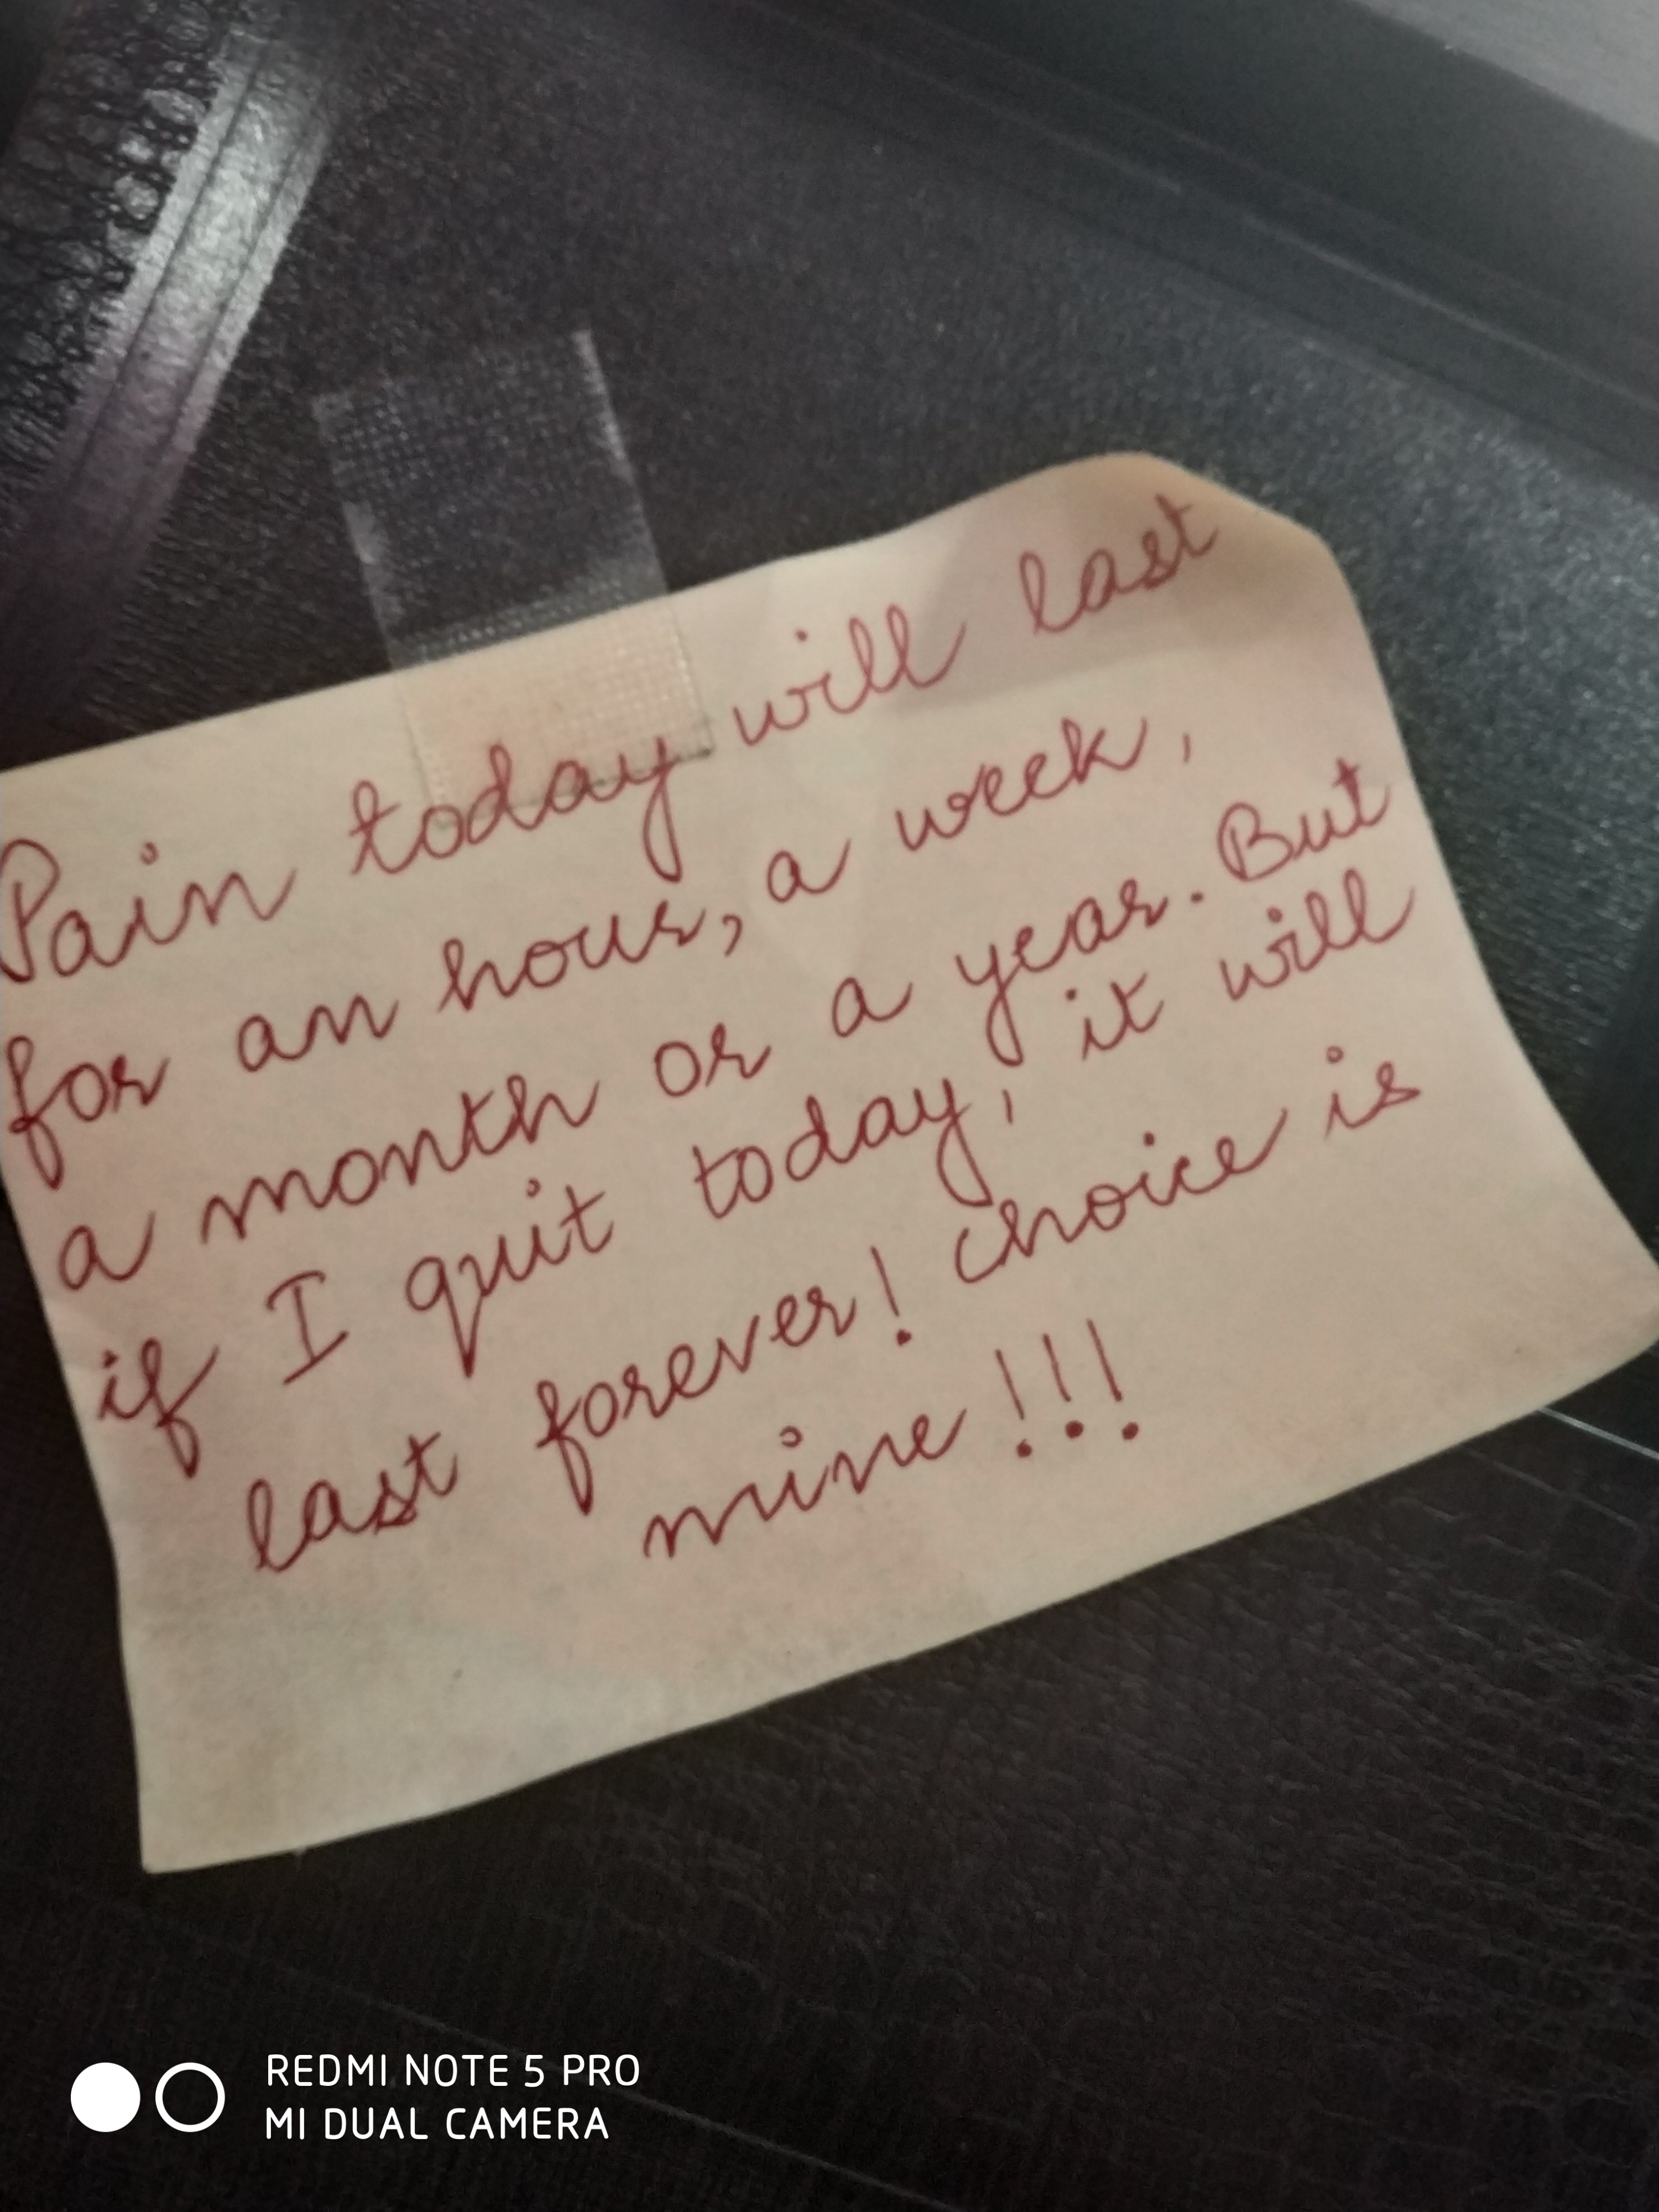 Pain today will last
for an hour, a week,
a month or a year. But
if I quit today, it will
last forever! choice is
mine!!!
REDMI NOTE 5 PRO
MI DUAL CAMERA